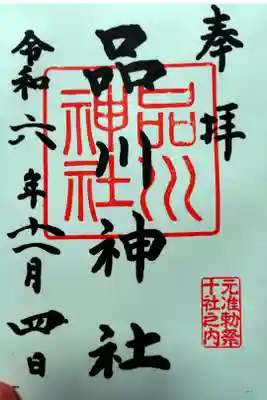 奉拝
品川神社
品川
神社
元准勅祭
十社之内
令和六年十一月四日